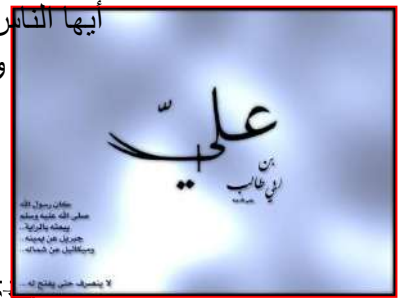 أيها الناس
و
عليّ
بن
أبي طالب
كان رسول الله
صلى الله عليه وسلم
يبعثه بالراية..
جبريل عن يمينه..
وميكائيل عن شماله..
لا ينصرف حتى يفتح له..